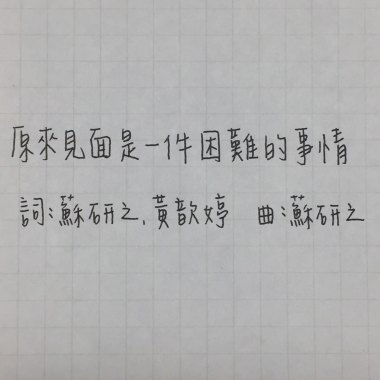 原來見面是一件困難的事情
詞:蘇研之,黃歆婷 曲:蘇研之